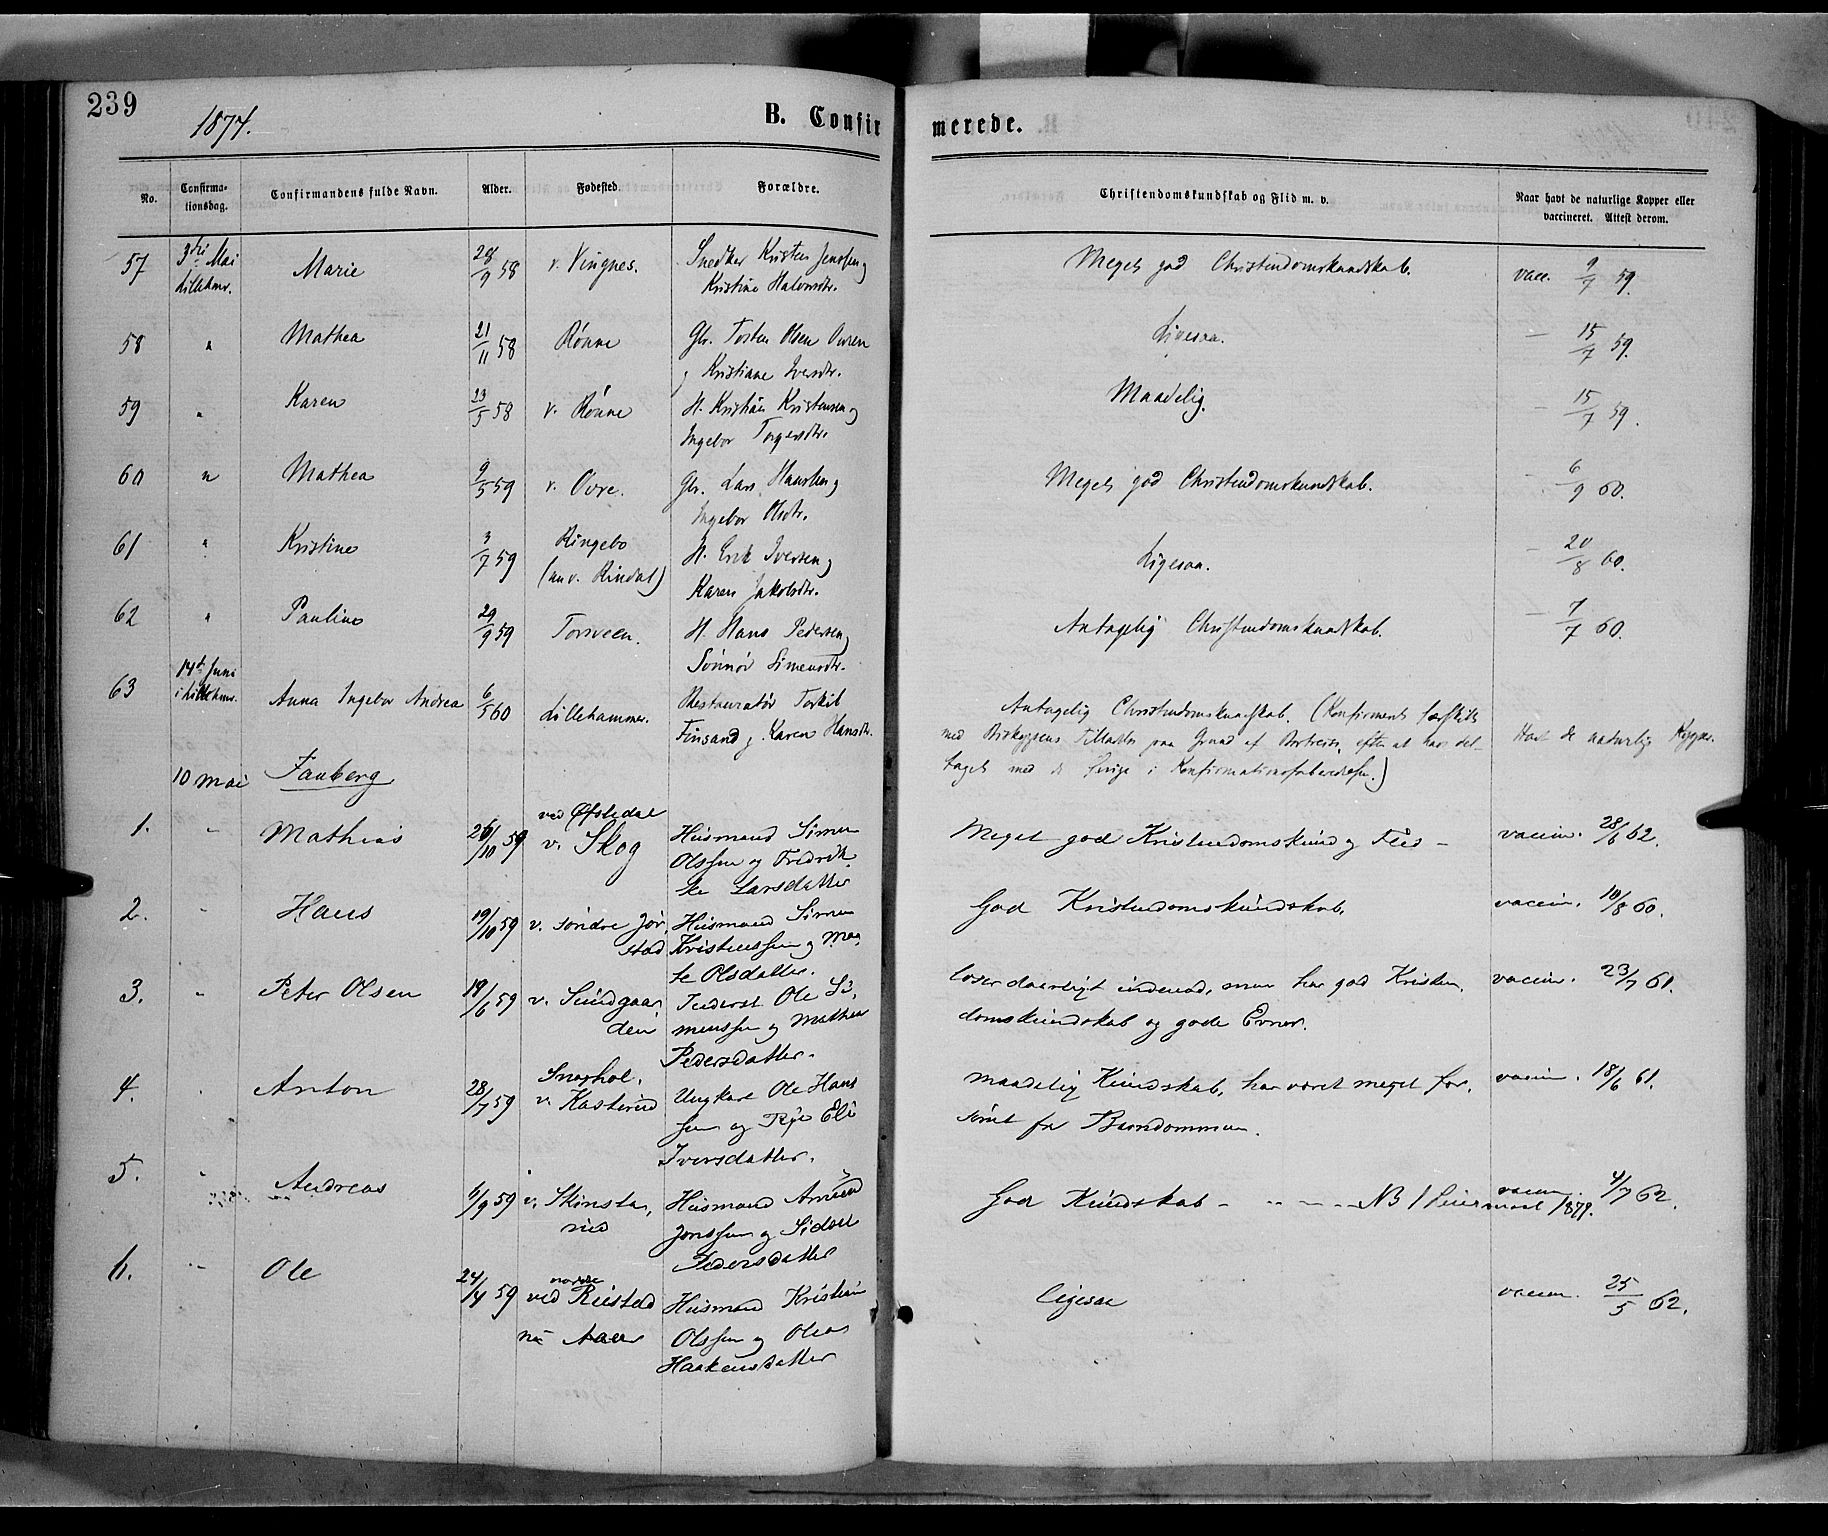 239
1874.
B. Confirmerede.
No.
Confirmationsdag.
Confirmandens fulde Navn.
Alder.
Fødested.
Forældre.
Christendomskundskab og Flid m. v.
Naar havt de naturlige Kopper eller
vaccineret. Attest derom.
57 Marie 28/9 58 v. Vingnes. Snedker Kristen Jensen og
Lillehmr. Kristine Halvorsdtr.
Meget god Christendomskundskab. vacc. 9/7 59.
58 " Mathea 21/11 58 Rønne Gbr. Torsten Olsen
og Kristiane Iversdtr.
Ligesaa. — 15/7 59.
59 " Karen 23/5 58 v. Rønne H. Kristian Kristensen og
Ingebor Torgersdtr.
Maadelig. — 15/7 59.
60 " Mathea 9/5 59 v. Ovre. Gbr. Lars Hansen og
Ingebor Olsdtr.
Meget god Christendomskundskab. — 6/9 60.
61 " Kristine 3/7 59 Ringebo H. Erik Iversen og
Rindal) Karen Jakobsdtr.
Ligesaa. — 20/8 60.
62 " Pauline 29/9 59 Torsveen. H. Hans Pedersen og
Sønnøv Simensdtr.
Antagelig Christendomskundskab. — 7/7 60.
63 14de Juni Anna Ingebor Andrea 6/5 60 Lillehammer. Restauratør Torkil
i Lillehmr. Finsand og Karen Hansdtr.
Antagelig Christendomskundskab. (Konfirmeret særskilt
med Biskoppens Tilladelse paa Grund af Bortreise, efter at have del-
taget med de øvrige i Konfirmationsforberedelsen.)
Havt de naturlig Kopper.
10 Mai Faaberg
1. " Mathias 26/10 59 ved Øfstedal
v. Skog Husmand Simen
Olssen og Fredrik-
ke Larsdatter
Meget god Kristendomskund og Flid — vaccin. 28/6 62.
2. " Hans 19/10 59 v. søndre Jør-
stad Husmand Simen
Kristenssen og Ma-
te Olsdatter.
God Kristendomskundskab. vaccin. 10/8 60.
3. " Peter Olsen 19/6 59 v. Sundgaar-
den Føderst Ole Si-
menssen og Mathea
Pedersdatter.
læser daarligt indenad, men har god Kristen-
domskundskab og gode Evner.
vaccin. 23/7 61.
4. " Anton 28/7 59
v. Kasterud Ungkarl Ole Hans
sen og Pige Eli
Iversdatter.
maadelig Kundskab, har været meget for-
sømt fra Barndommen.
vaccin. 18/6 61.
5. " Andreas 6/9 59 v. Skønsta-
Husmand Amund
Jonssen og Sidsel
Pedersdatter
God Kundskab — NB 1879. vaccin. 4/7 62.
6. " Ole 24/4 59 nordre
ved Rustad Husmand Kristian
nu Aaen Olssen og Olea
Haakensdatter
ligesaa vaccin. 25/5 62.